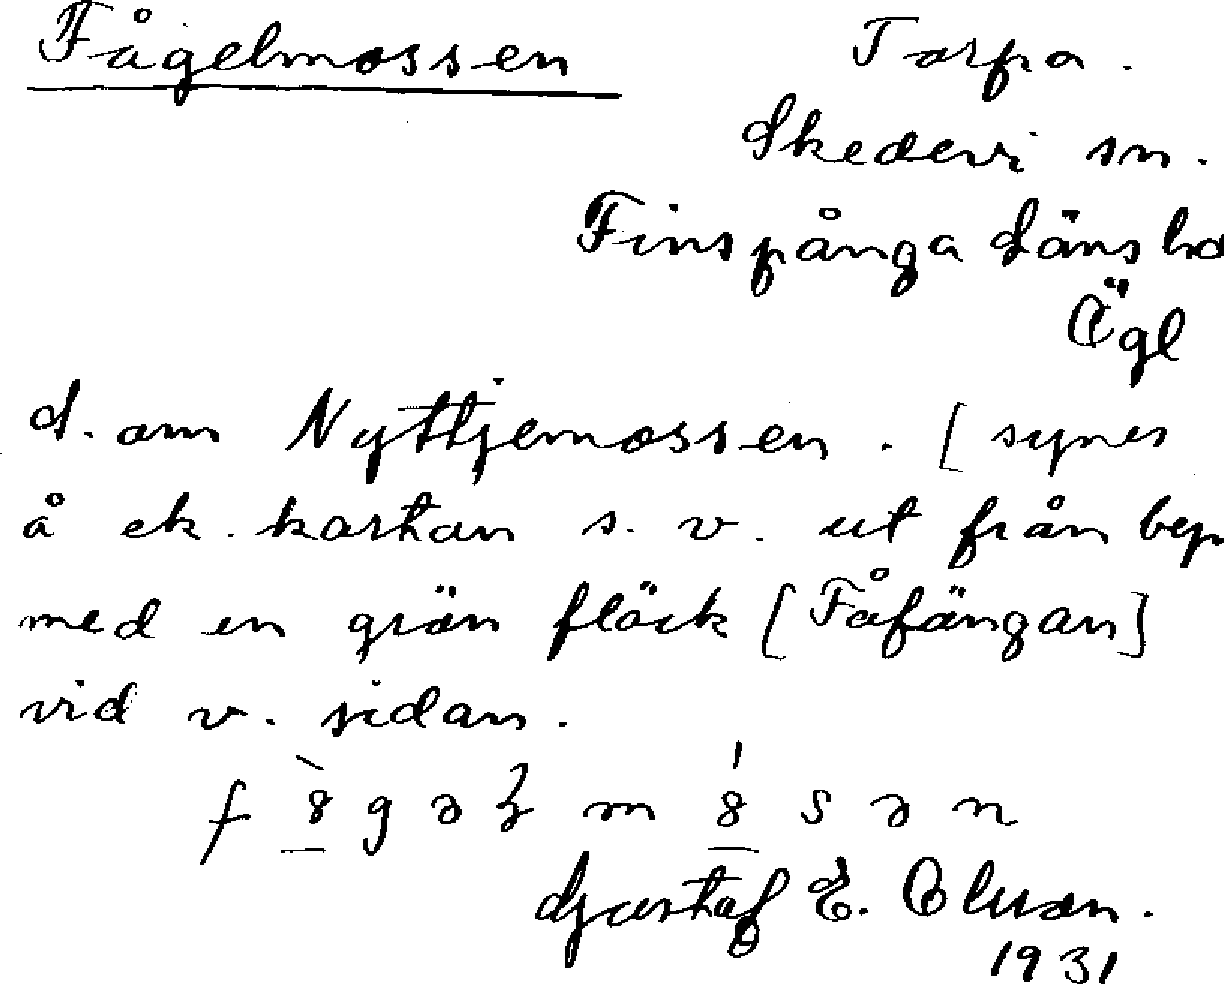 Fågelmossen
Torpa.
Skedevi sn.
Finspånga Läns hd
Ögl
d. om Nyttjemossen. [synes
å ek. kartan s. v. ut från byn
med en grön fläck [Fåfängan]
vid v. sidan.
Gustaf E. Olsson.
1931